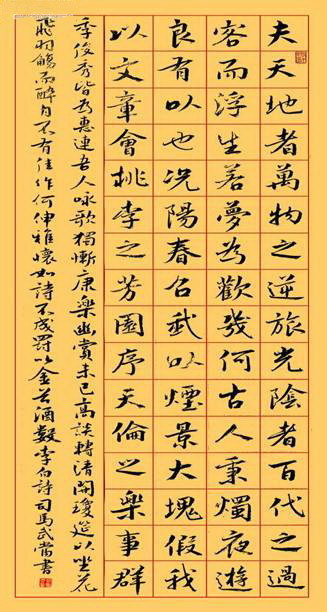 夫天地者萬物之逆旅光陰者百代之過
客而浮生若夢為歡幾何古人秉燭夜遊
良有以也況陽春召我以煙景大塊假我
以文章會桃李之芳園序天倫之樂事群
季俊秀皆為惠連吾人咏歌獨慚康樂幽賞未已高談轉清開瓊筵以坐花
飛羽觴而醉月不有佳作何伸雅懷如詩不成罰以金谷酒數李白詩司馬武當書